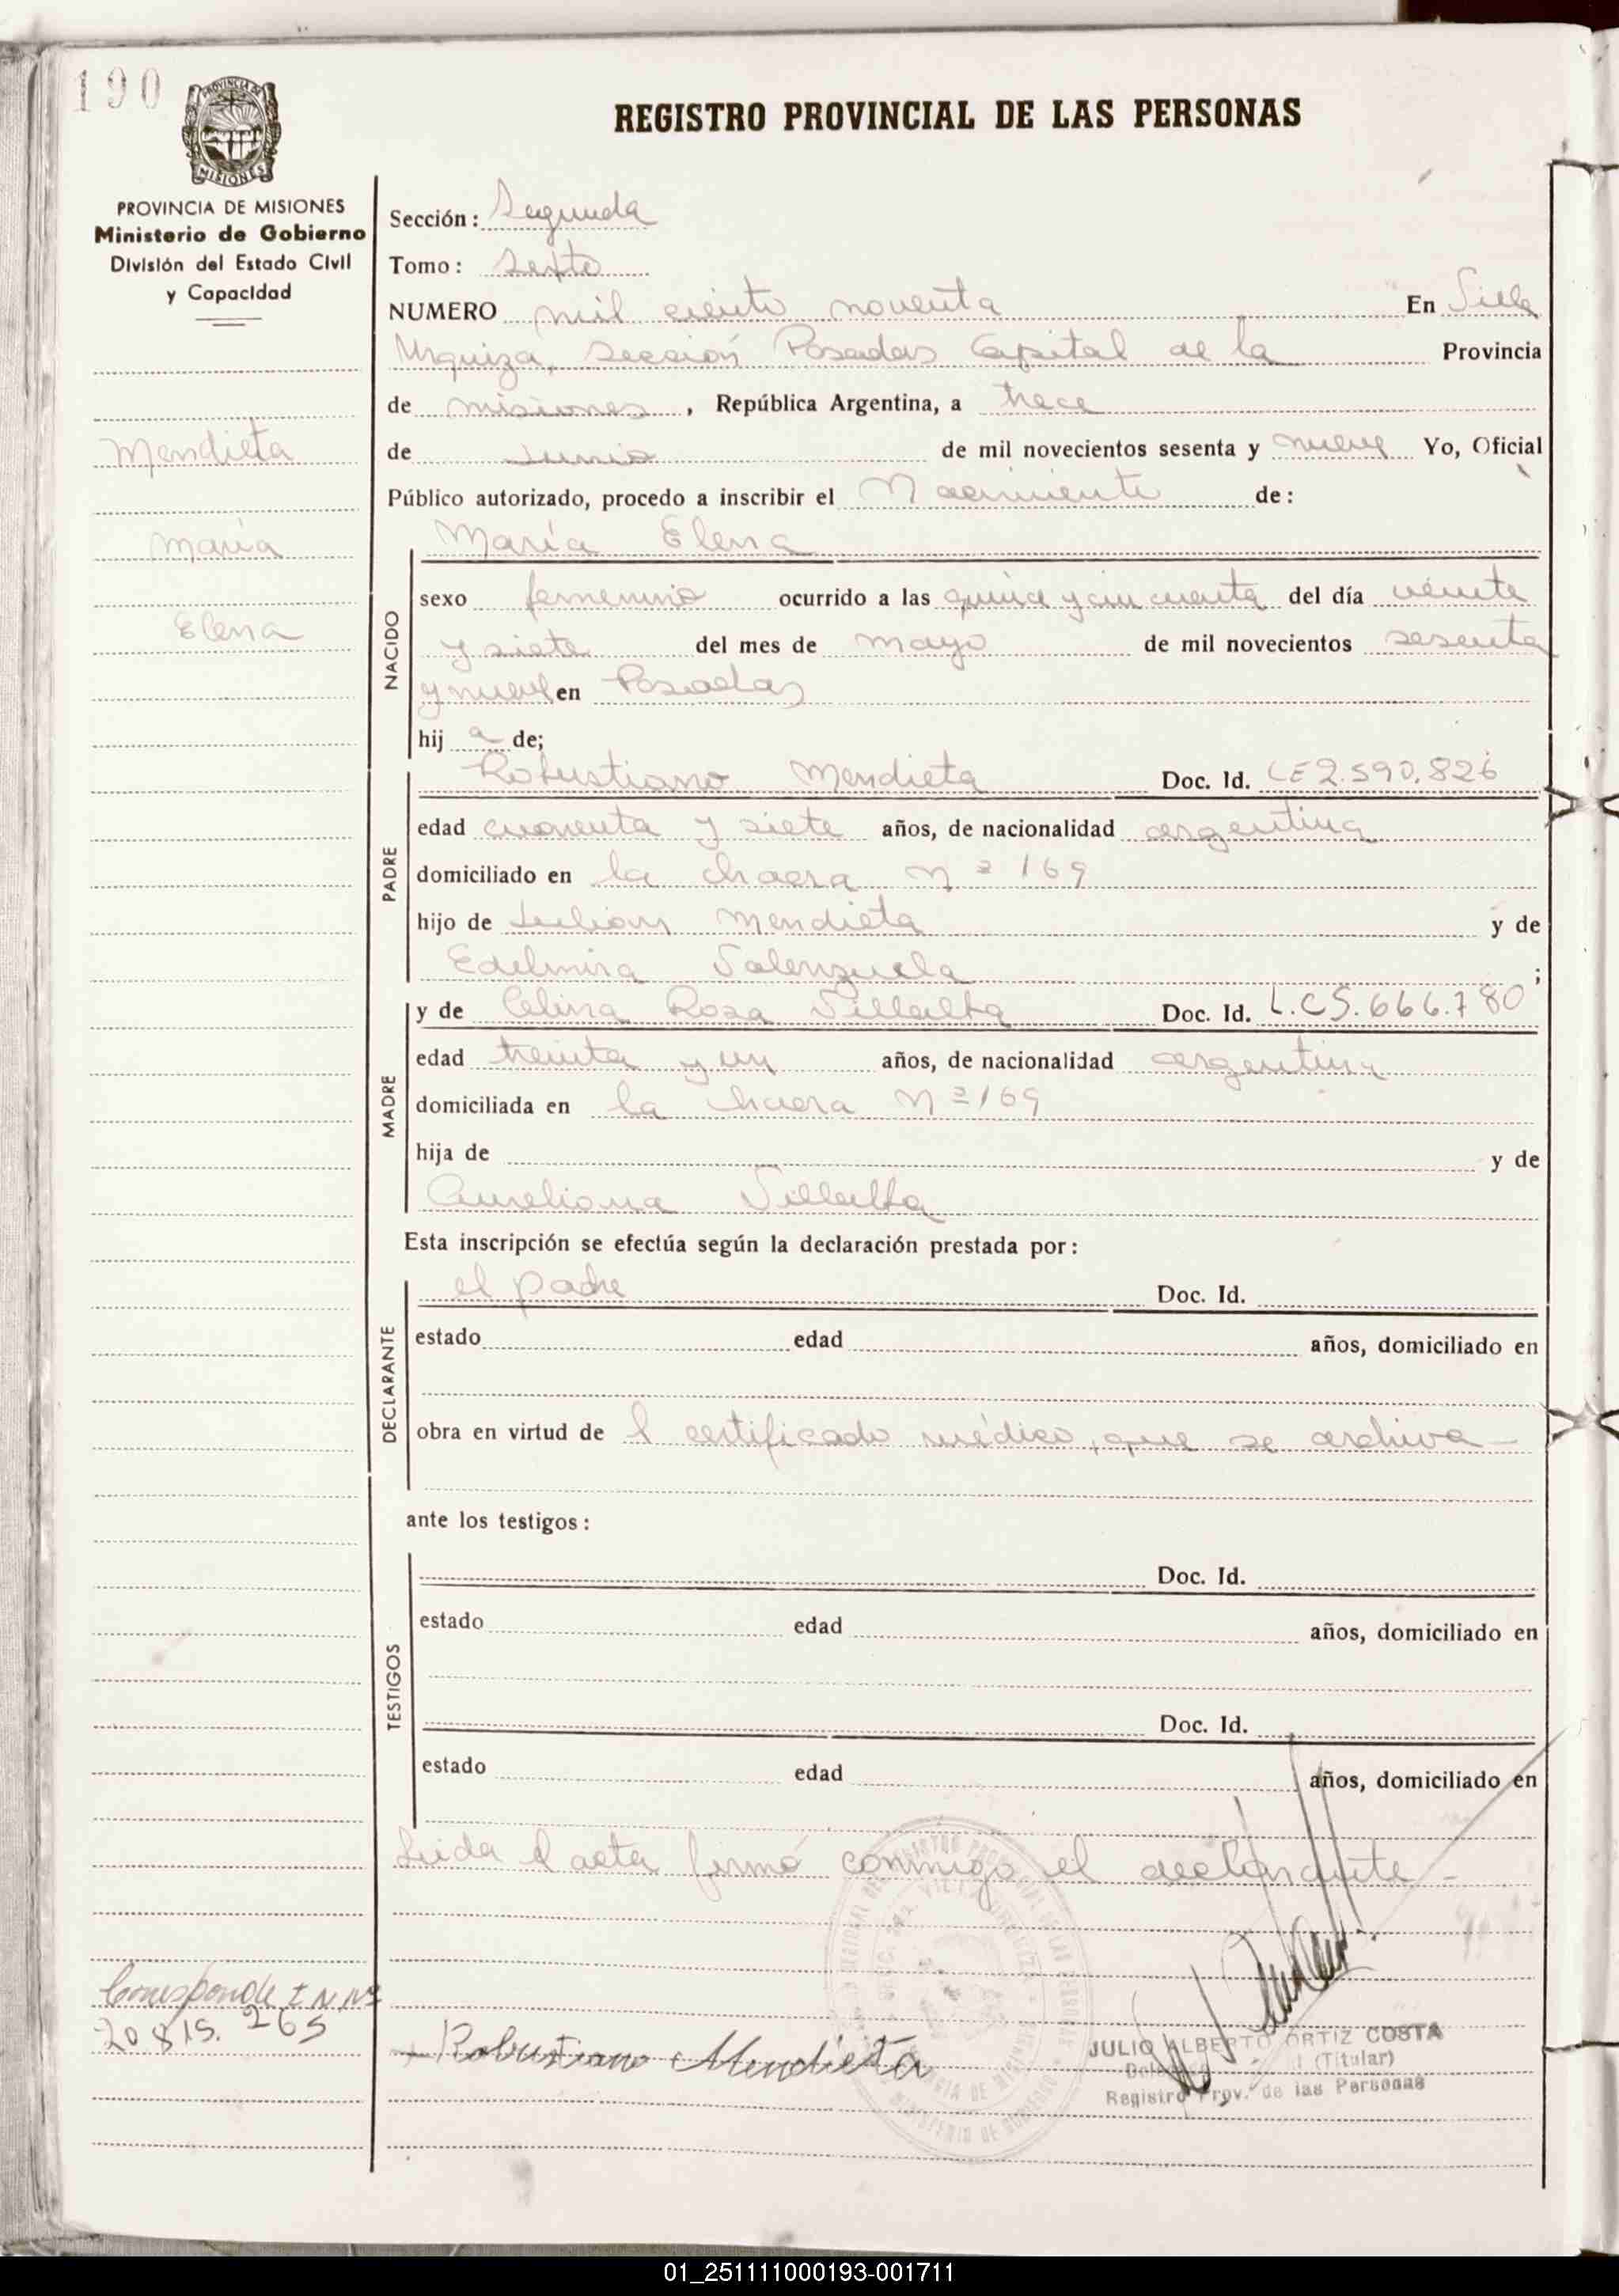 190
PROVINCIA DE MISIONES
MISIONES
REGISTRO PROVINCIAL DE LAS PERSONAS
PROVINCIA DE MISIONES
Ministerio de Gobierno
División del Estado Civil
y Capacidad
Sección: Segunda
Tomo: Sexto
NUMERO mil ciento noventa En Villa
Urquiza, Sección Posadas Capital de la Provincia
de misiones, República Argentina, a trece
Mendieta
de Junio de mil novecientos sesenta y nueve Yo, Oficial
Público autorizado, procedo a inscribir el Nacimiento de:
María
María Elena
NACIDO
sexo femenino ocurrido a las quince y cincuenta del día veinte
Elena
y siete del mes de mayo de mil novecientos sesenta
y nueve en Posadas
hij a de;
PADRE
Robustiano Mendieta Doc. Id. LE 2.590.826
edad cuarenta y siete años, de nacionalidad argentina
domiciliado en la chacra Nº 169
hijo de Julian Mendieta y de
Edelmira Valenzuela ;
MADRE
y de Celina Rosa Villalba Doc. Id. L.C 5.666.780
edad treinta y un años, de nacionalidad argentina
domiciliada en la chacra Nº 169
hija de y de
Aureliana Villalba
Esta inscripción se efectúa según la declaración prestada por:
DECLARANTE
el padre Doc. Id.
estado edad años, domiciliado en
obra en virtud de l certificado médico, que se archiva –
ante los testigos:
TESTIGOS
Doc. Id.
estado edad años, domiciliado en
Doc. Id.
estado edad años, domiciliado en
Leida el acta firmó conmigo el declarante –
Corresponde I N Nº
20.815.265
Robustiano Mendieta
JULIO ALBERTO ORTIZ COSTA
(Titular)
Registro Prov. de las Personas
01_251111000193-001711